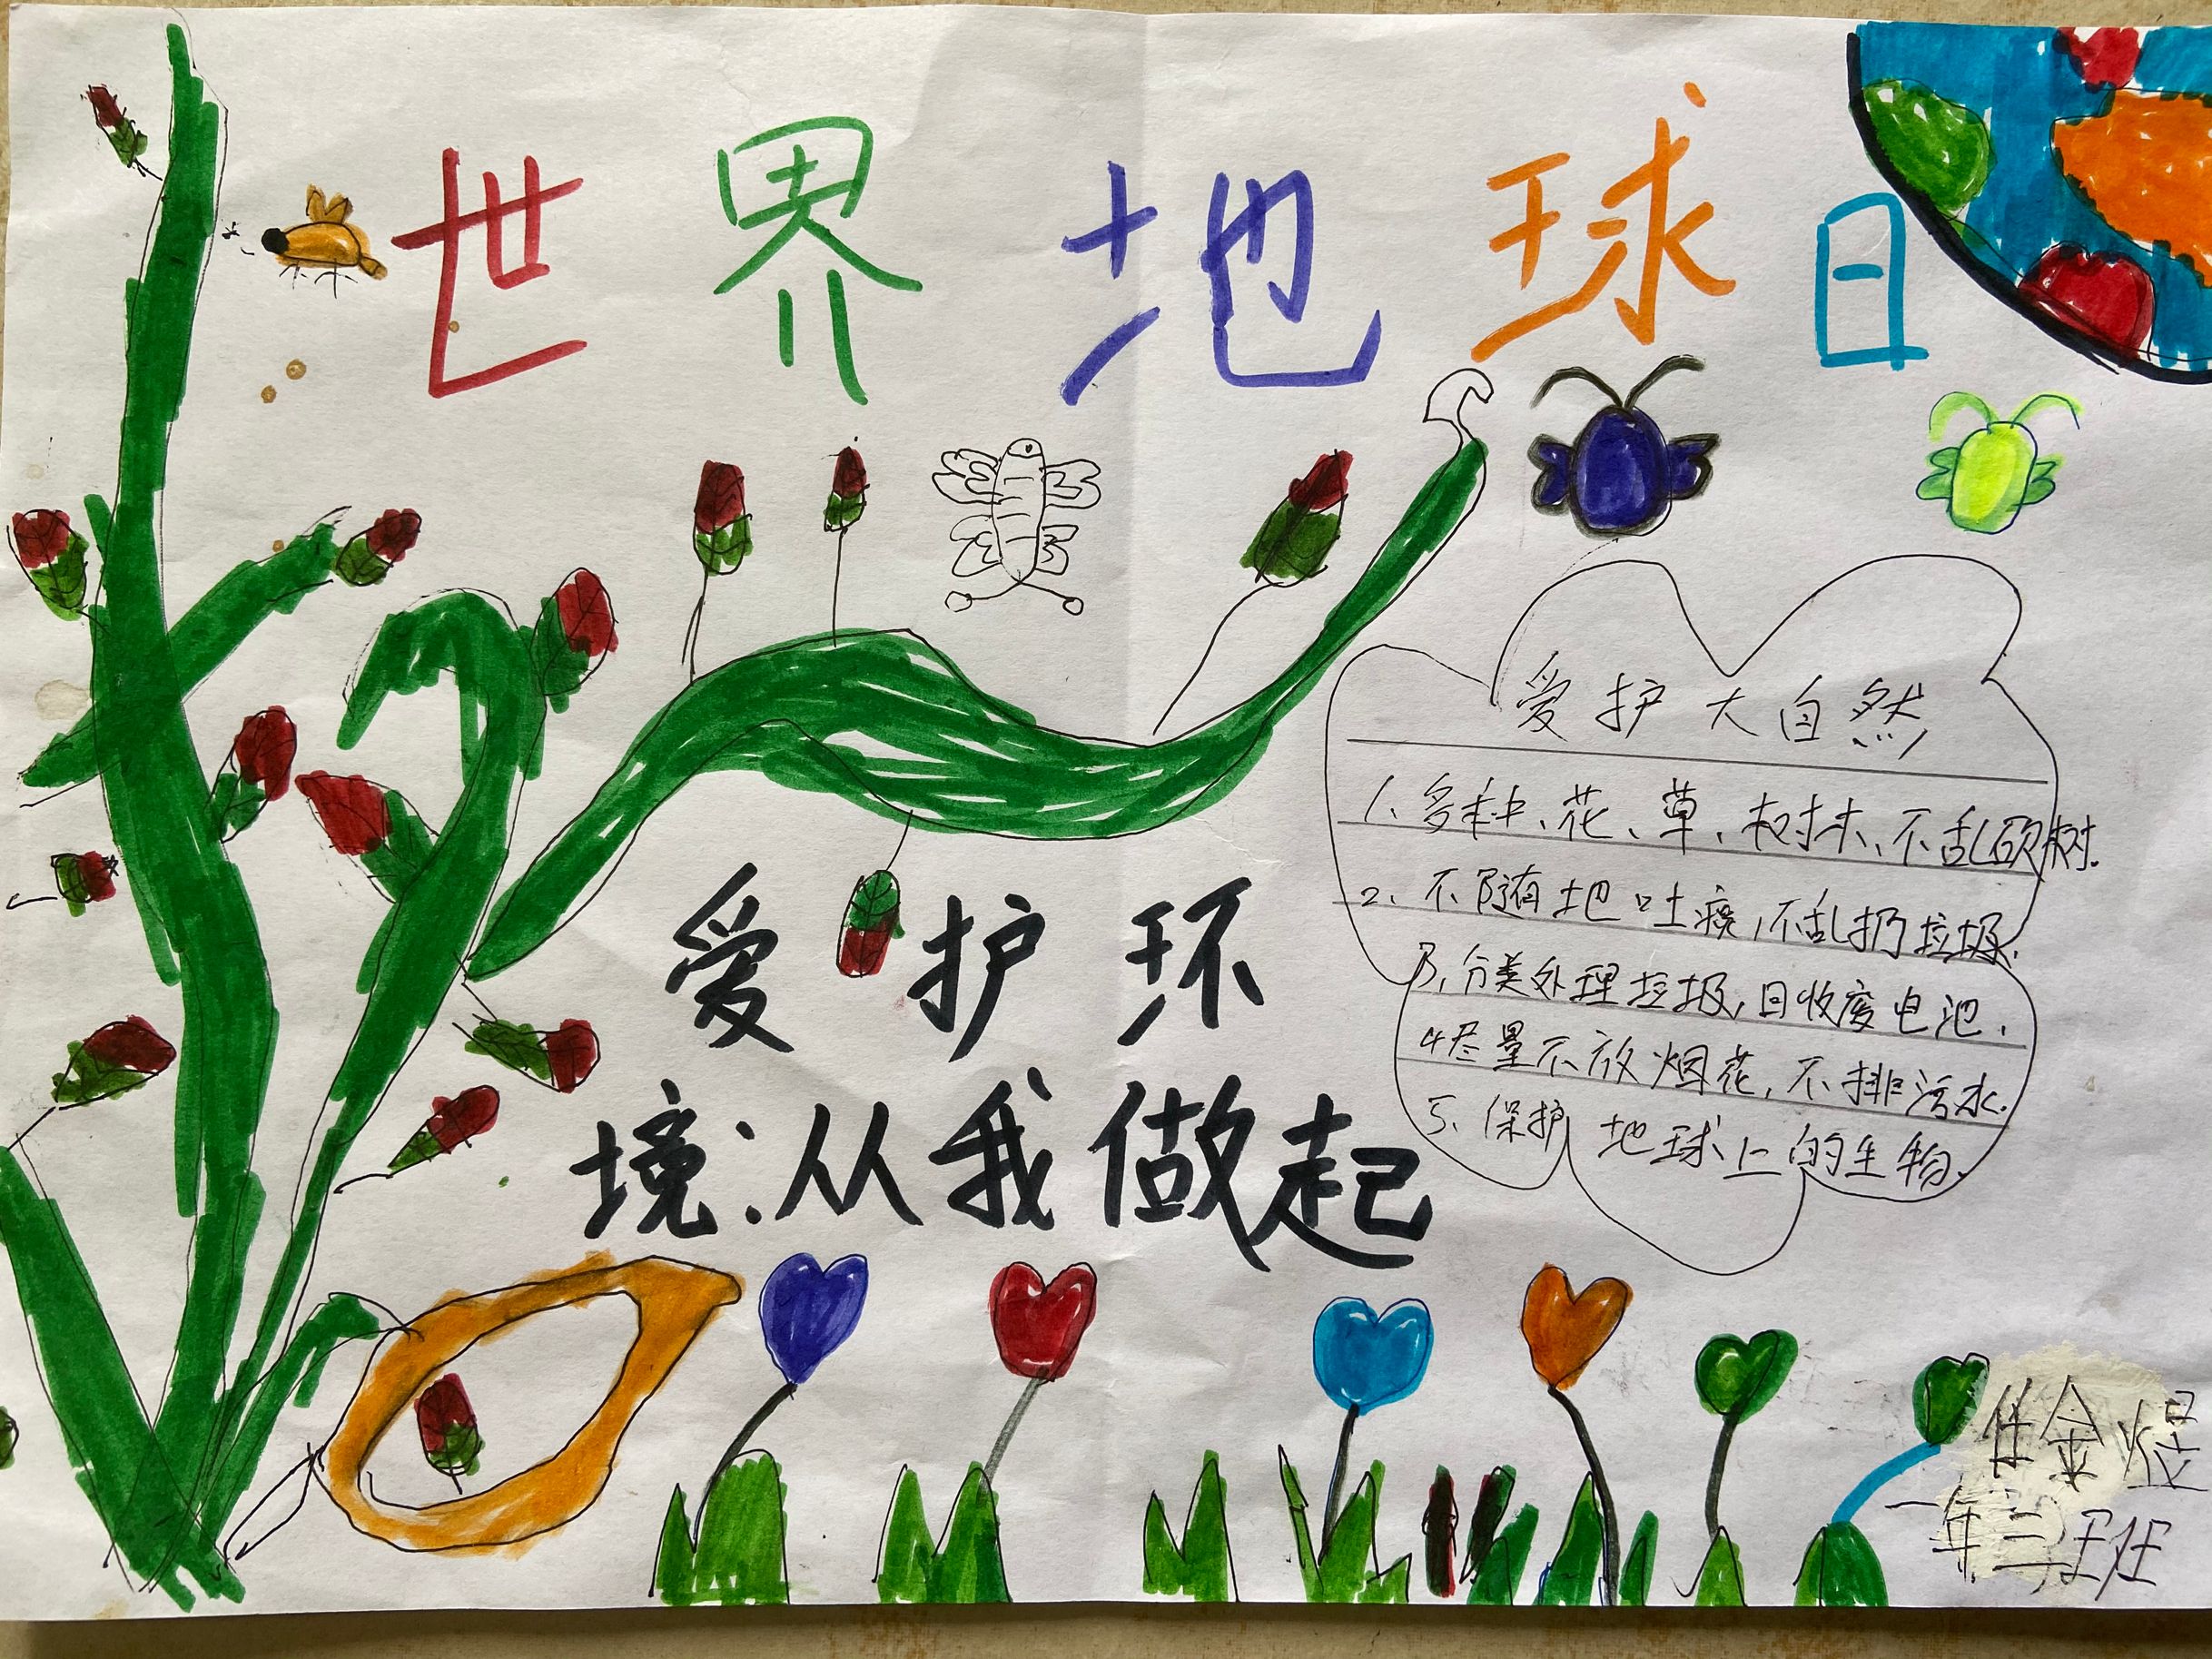 世界地球日
爱护环
境:从我做起
爱护大自然
1、多种、花、草、树木、不乱砍树.
2、不随地吐痰,不乱扔垃圾.
3,分类处理垃圾,回收废电池.
4尽量不放烟花,不排污水.
5、保护地球上的生物.
一年三班